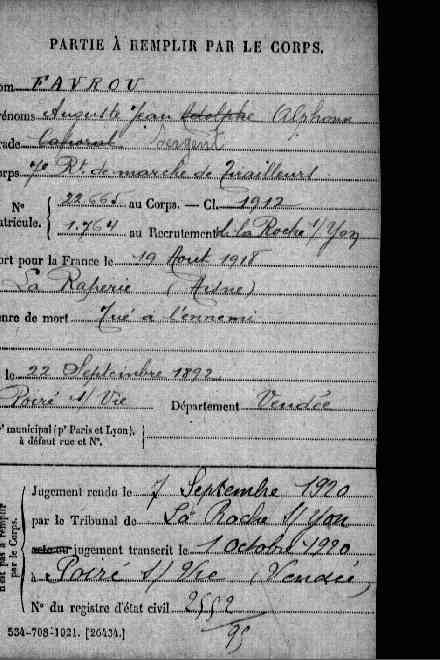 PARTIE À REMPLIR PAR LE CORPS.
om FAVROU
énoms Auguste Jean Adolphe Alphonse
ade Caporal Sergent
orps 7e Rt de marche de Tirailleurs
N° 22.665 au Corps. — Cl. 1912
atricule. 1.764 au Recrutement de la Roche s/Yon
ort pour la France le 19 Aout 1918
La Raperie (Aisne)
nre de mort Tué à l'ennemi
le 22 Septembre 1892
Poiré s/ Vie Département Vendée
r municipal (pr Paris et Lyon), à défaut rue et N°.
N'est pas à remplir par le Corps.
Jugement rendu le 7 Septembre 1920
par le Tribunal de La Roche s/Yon
acte ou jugement transcrit le 1 Octobre 1920
à Poiré s/ Vie (Vendée)
N° du registre d'état civil
534-708-1921. [26434.]